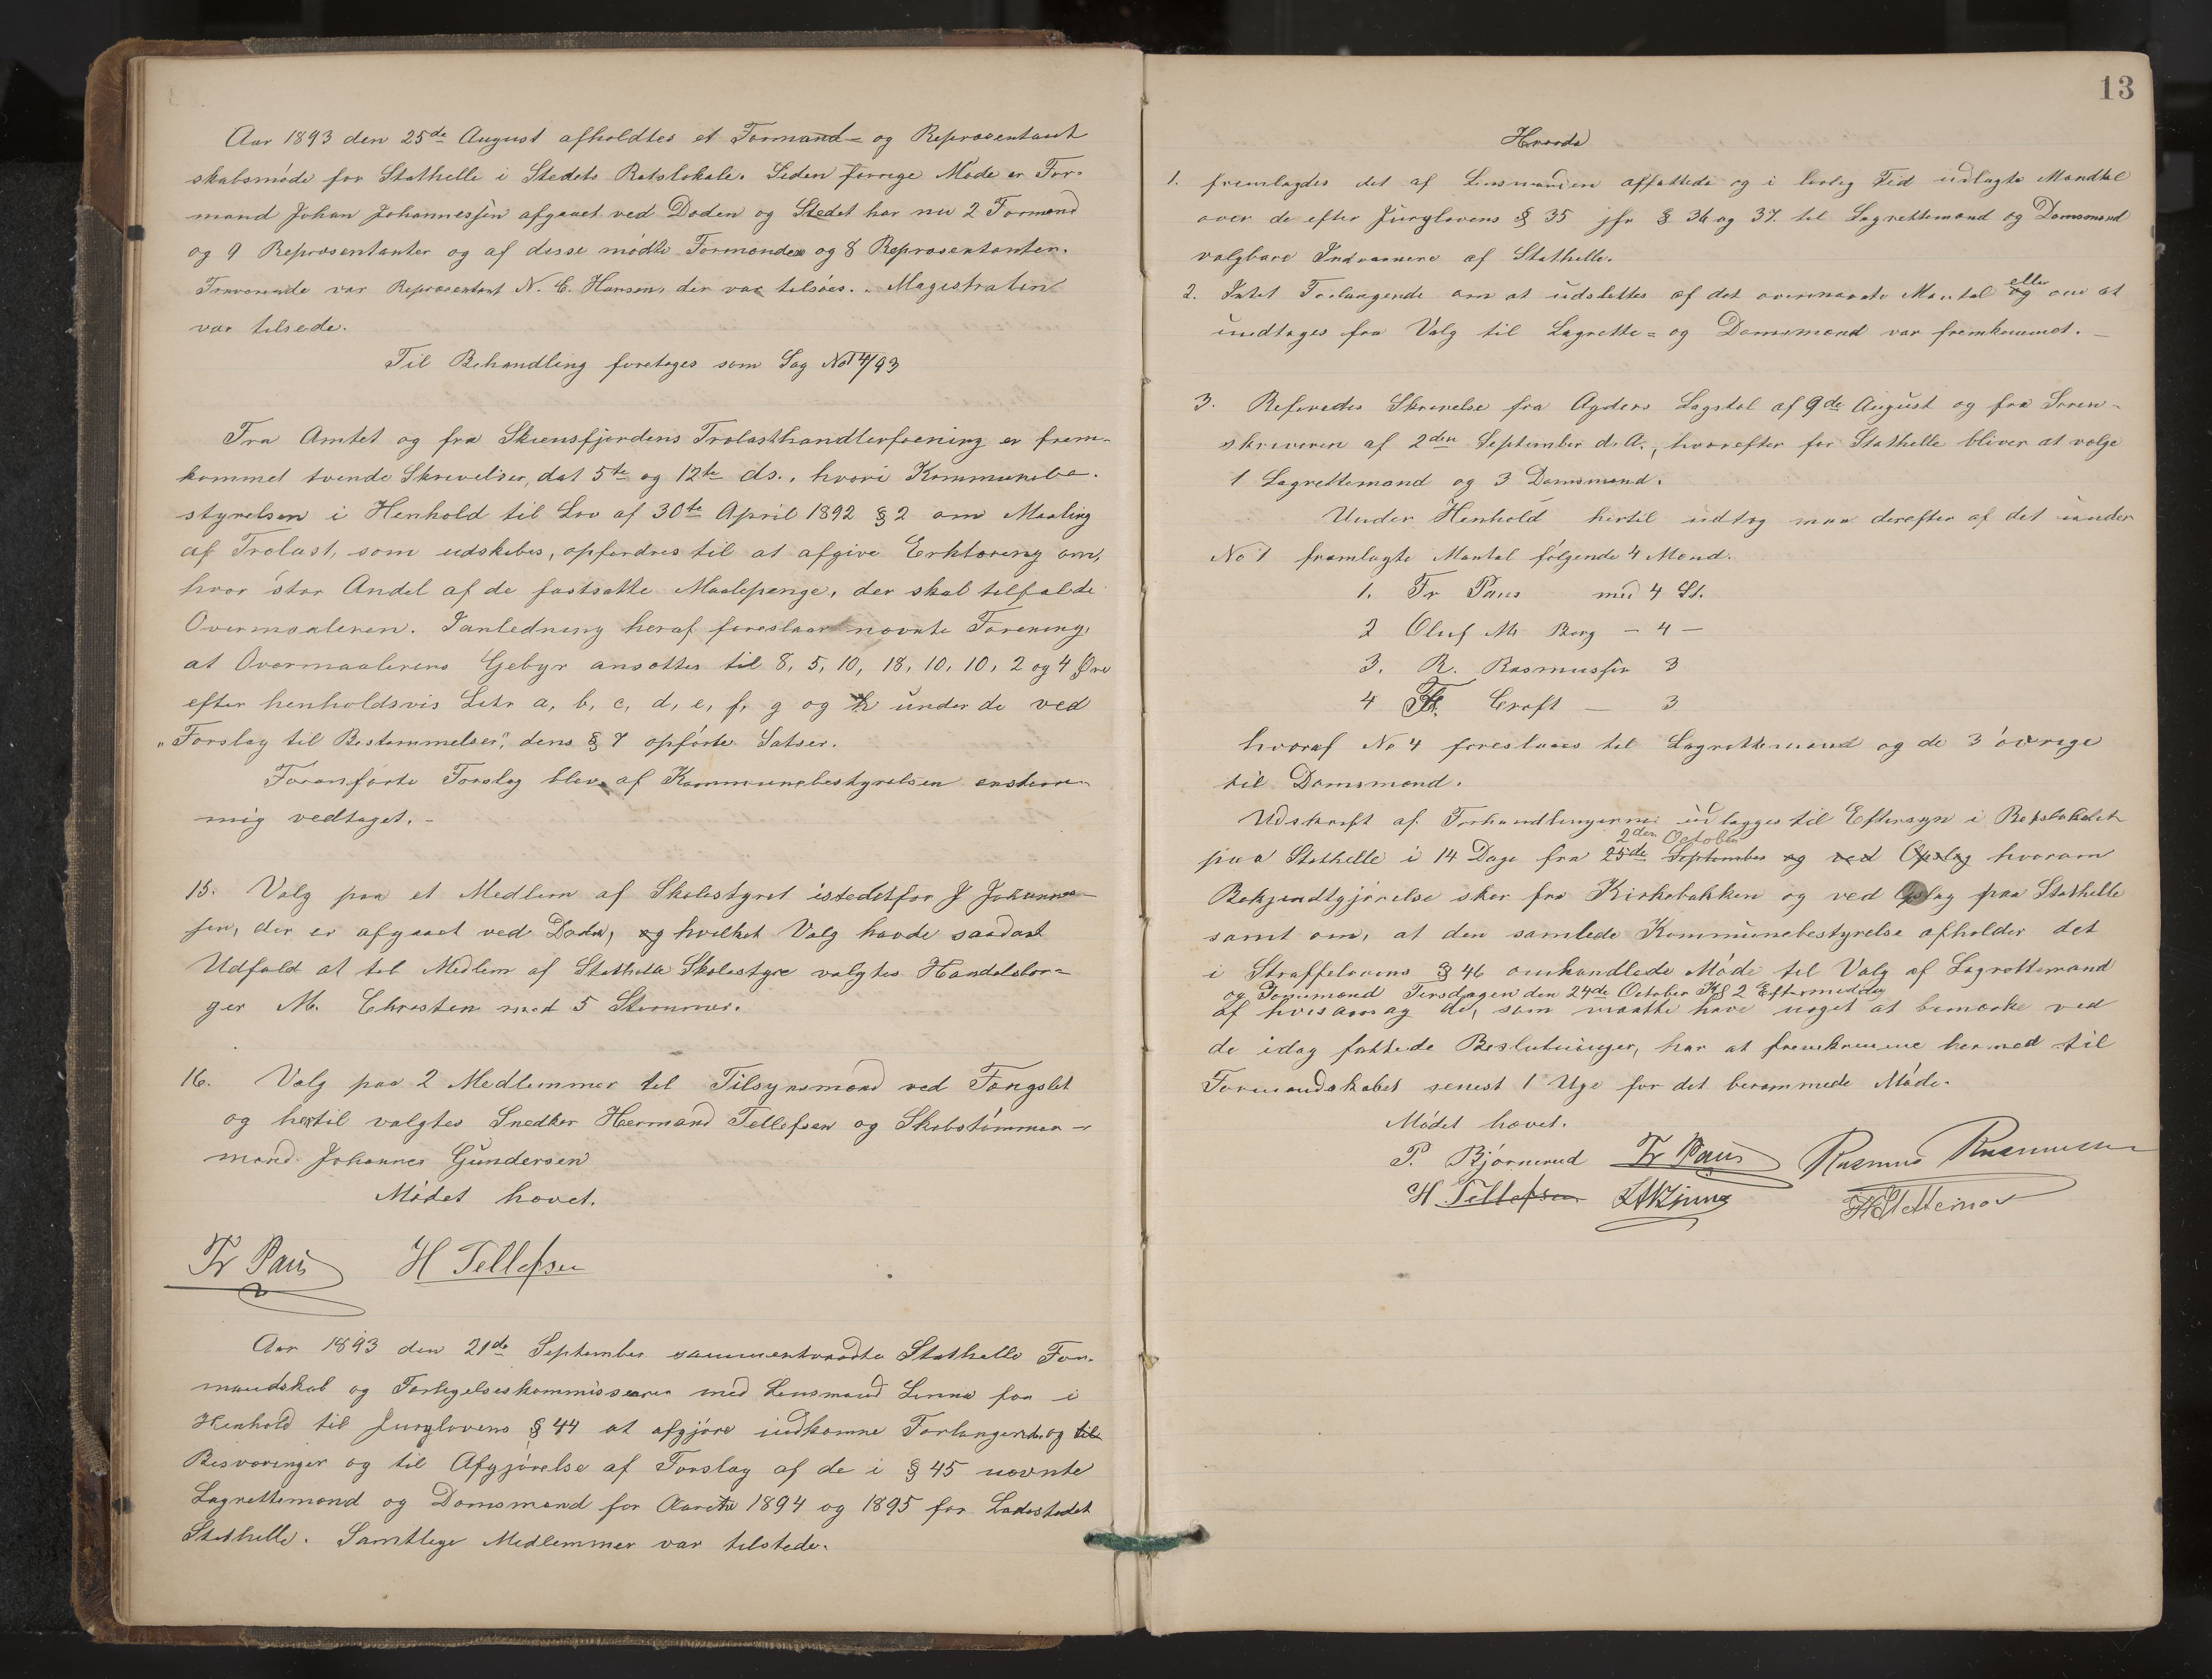 Aar 1893 den 25de August afholdtes et Formand- og Repræsentant
skabsmöde for Stathelle i Stedets Retslokale. Siden forrige Möde er For-
mand Johan Johannessen afgaaet ved Döden og Stedet har nu 2 Formænd
og 9 Repræsentanter og af disse mödte Formændene og 8 Repræsentanter.
Fraværende var Repræsentant N. C. Hansen, der var tilsöes. Magistraten
var tilstede.
Til Behandling foretages som Sag No 14/93
Fra Amtet og fra Skiensfjordens Trælasthandlerforening er frem-
kommet tvende Skrivelser, dat 5te og 12te ds., hvori Kommunebe-
styrelsen i Henhold til Lov af 30te April 1892 § 2 om Maaling
af Trælast, som udskibes, opfordres til at afgive Erklæring om,
hvor stor Andel af de fastsatte Maalepenge, der skal tilfalde
Overmaaleren. I anledning heraf foreslaar nævnte Forening,
at Overmaalerens Gebyr ansættes til 8, 5, 10, 18, 10, 10, 2 og 4 Öre
efter henholdsvis Litr a, b, c, d, e, f, g og h under de ved
"Forslag til Bestemmelser", dens § 7 opförte Satser.
Foranförte Forslag blev af Kommunebestyrelsen enstem-
mig vedtaget. -
15. Valg paa et Medlem af Skolestyret istedetfor J Johannes-
sen, der er afgaaet ved Döden, og hvilket Valg havde saadant
Udfald at til Medlem af Stathelle Skolestyre valgtes Handelsbor-
ger M. Christen med 5 Stemmer.
16. Valg paa 2 Medlemmer til Tilsynsmænd ved Fængslet
og hertil valgtes Snedker Hermand Tellefsen og Skibstömmer-
mand Johannes Gundersen
Mödet hævet.
Fr Paus H Tellefsen
Aar 1893 den 21de September sammentraadte Stathelle For-
mandskab og Forligelseskommissærer med Lensmand Linnæ for i
Henhold til Jurylovens § 44 at afgjöre indkomne Forlangender og til
Besværinger og til Afgjörelse af Forslag af de i § 45 nævnte
Lagrettemænd og Domsmænd for Aarene 1894 og 1895 for Ladestedet
Stathelle. Samtlige Medlemmer var tilstede.
13
Hvorda
1. fremlagdes det af Lensmanden affattede og i lovlig Tid udlagte Mandtal
over de efter Jurylovens § 35 jfr § 36 og 37 til Lagrettemænd og Domsmænd
valgbare Indvaanere af Stathelle.
2. Intet Forlangende om at udslettes af det ovennævnte Mantal eller og om at
undtages fra Valg til Lagrette- og Domsmænd var fremkommet. -
3. Referedes Skrivelse fra Agders Lagstol af 9de August og fra Soren-
skriveren af 2den September d. A., hvorefter for Stathelle bliver at vælge
1 Lagrettemand og 3 Domsmænd.
Under Henhold hertil udtog man derefter af det under
No 1 fremlagte Mantal fölgende 4 Mænd.
1. Fr Paus med 4 St.
2 Oluf M Borg - 4 -
3. R. Rasmussen 3
4 Croft - 3
hvoraf No 4 foreslaaes til Lagrettemand og de 3 övrige
til Domsmænd.
Udskrift af Forhandlingerne udlægges til Eftersyn i Retslokalet
2den October
paa Stathelle i 14 Dage fra 25de September og ved Opslag hvorom
Bekjendtgjörelse sker fra Kirkebakken og ved Opslag paa Stathelle
samt om, at den samlede Kommunebestyrelse afholder det
i Straffelovens § 46 omhandlede Möde til Valg af Lagrettemænd
og Domsmænd Tirsdagen den 24de October Kl 2 Eftermiddag
af hvis aarsag de, som maatte have noget at bemærke ved
de idag fattede Beslutninger, har at fremkomme hermed til
Formandskabet senest 1 Uge för det berammede Möde.
Mödet hævet.
P. Bjornerud Fr Paus Rasmus Rasmussen
H Tellefsen